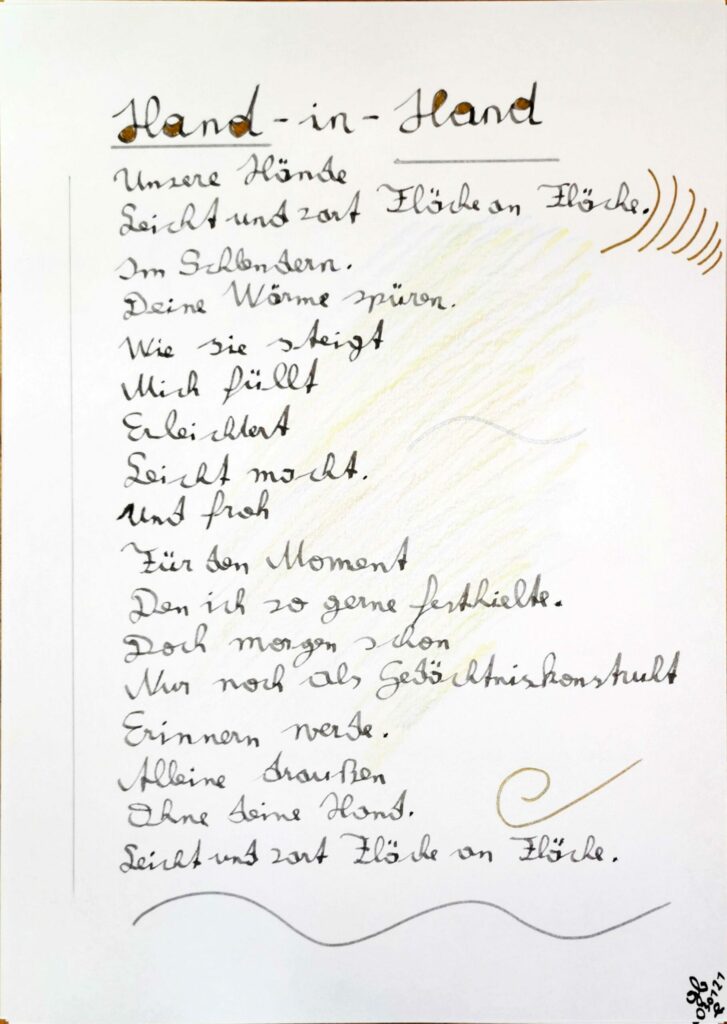 Hand-in-Hand
Unsere Hände
Leicht und zart Fläche an Fläche.
Im Schlendern.
Deine Wärme spüren.
Wie sie steigt
Mich füllt
Erleichtert
Leicht macht.
Und froh
Für den Moment
Den ich so gerne festhielte.
Doch morgen schon
Nur noch als Gedächtniskonstrukt
Erinnern werde.
Alleine draußen
Ohne deine Hand.
Leicht und zart Fläche an Fläche.